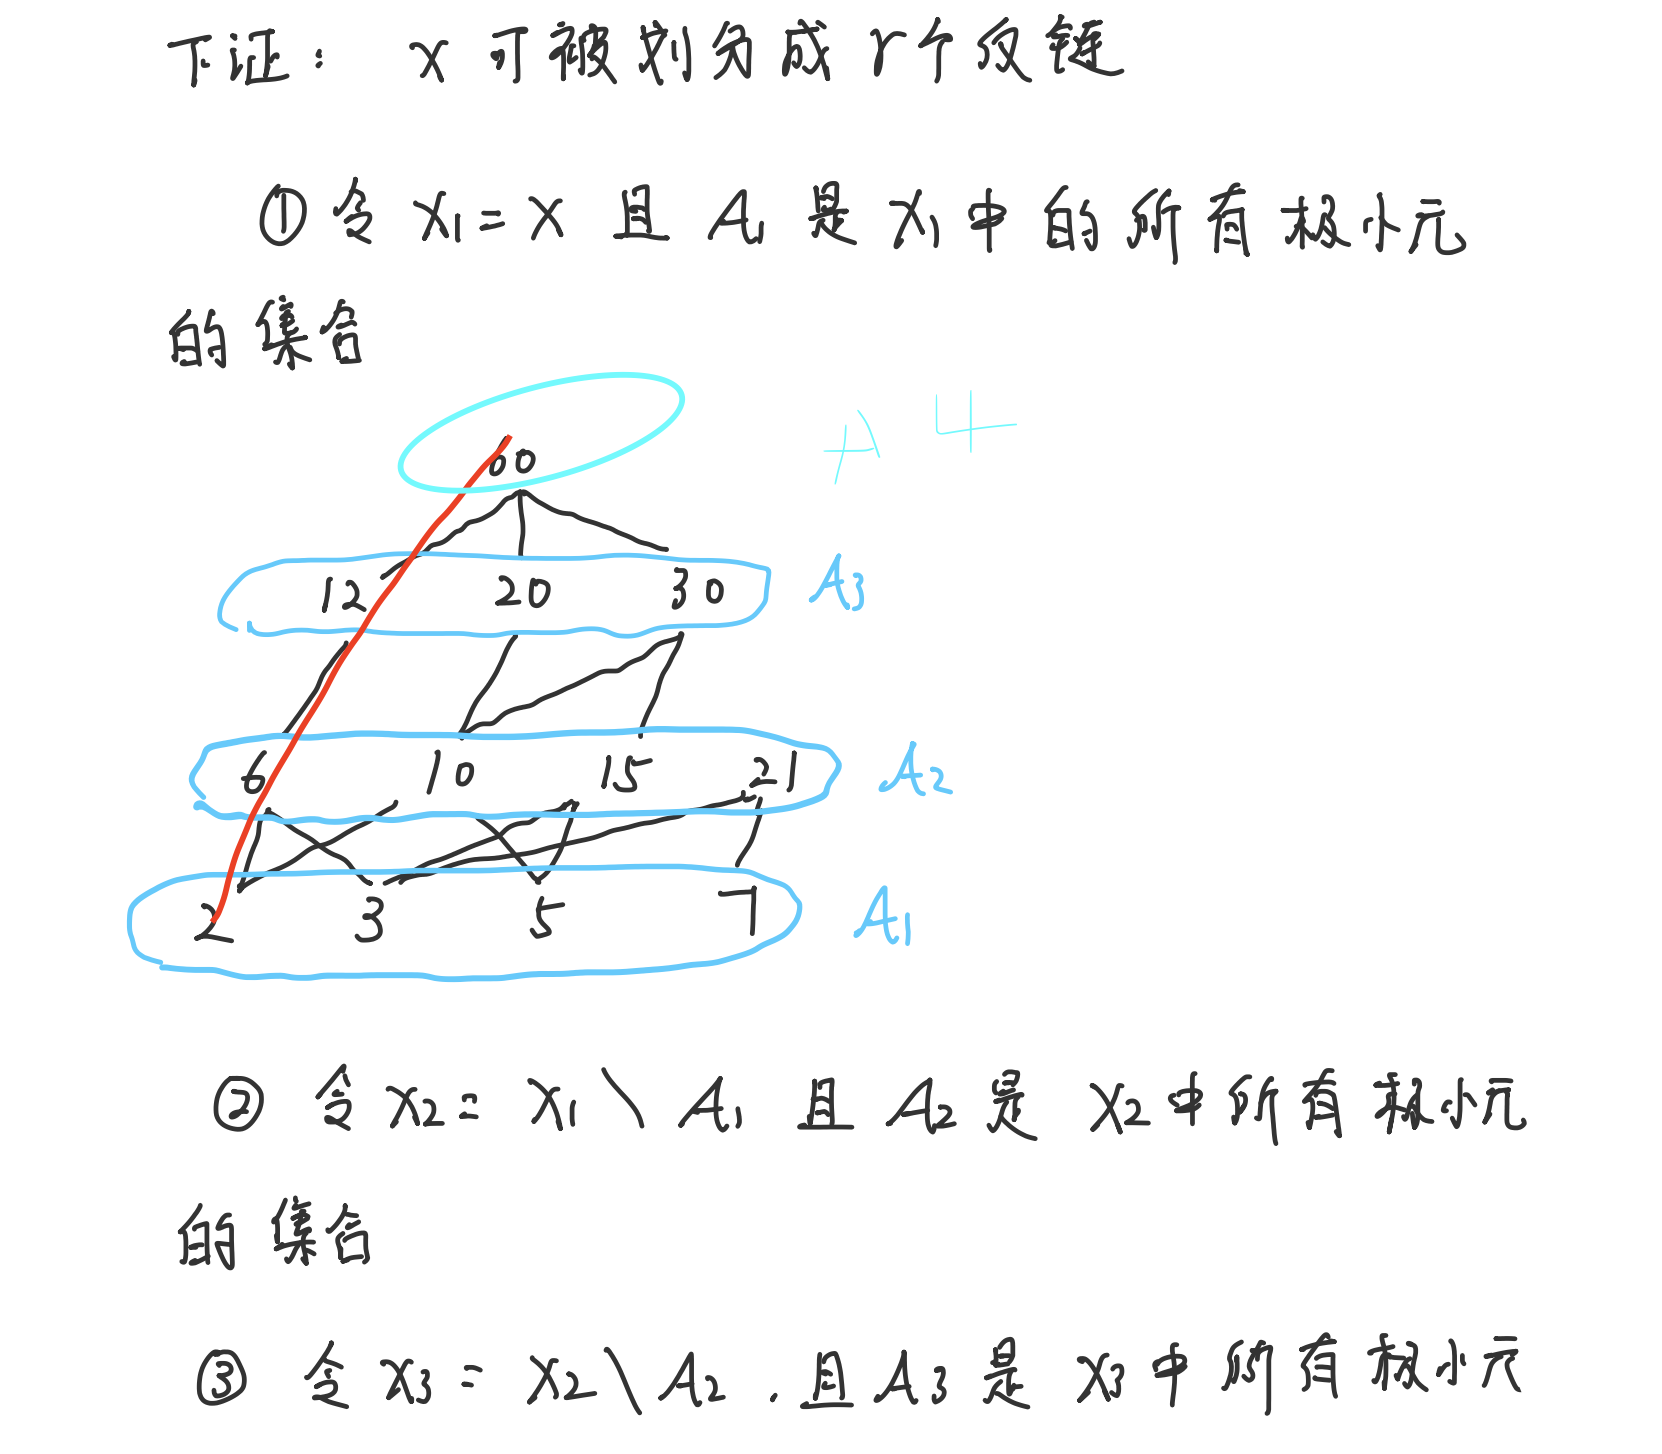 下证： X 可被划分成 r个反链
① 令 X₁=X 且 A₁ 是 X₁ 中的所有极小元
的集合
60 A4
12 20 30 A₃
6 10 15 21 A₂
2 3 5 7 A₁
② 令 X₂= X₁ \ A₁ 且 A₂ 是 X₂ 中所有极小元
的集合
③ 令 X₃ = X₂ \ A₂ . 且 A₃ 是 X₃ 中所有极小元